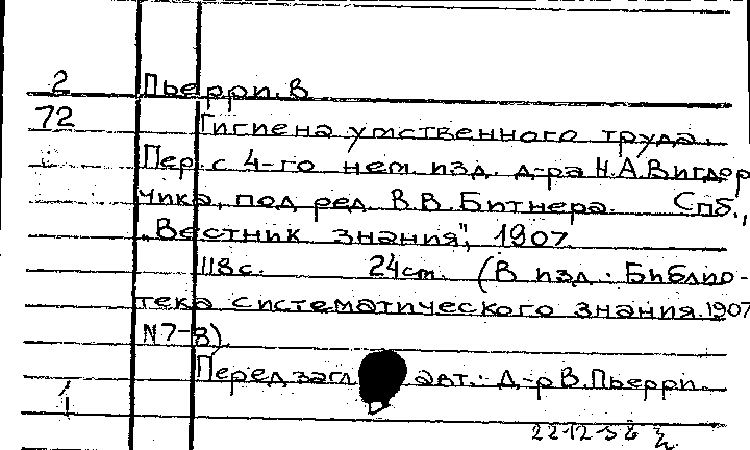 2 Пьерри. В
72 Гигиена умственного труда.
Пер. с 4-го нем. изд. д-ра Н.А.Вигдор
чика, под ред. В.В.Битнера. Спб.,
„Вестник знания", 1907
118с. 24см. (В изд.: Библио-
тека систематического знания.1907
N7-8)
Перед загл. авт.: Д-р В.Пьерри.
1